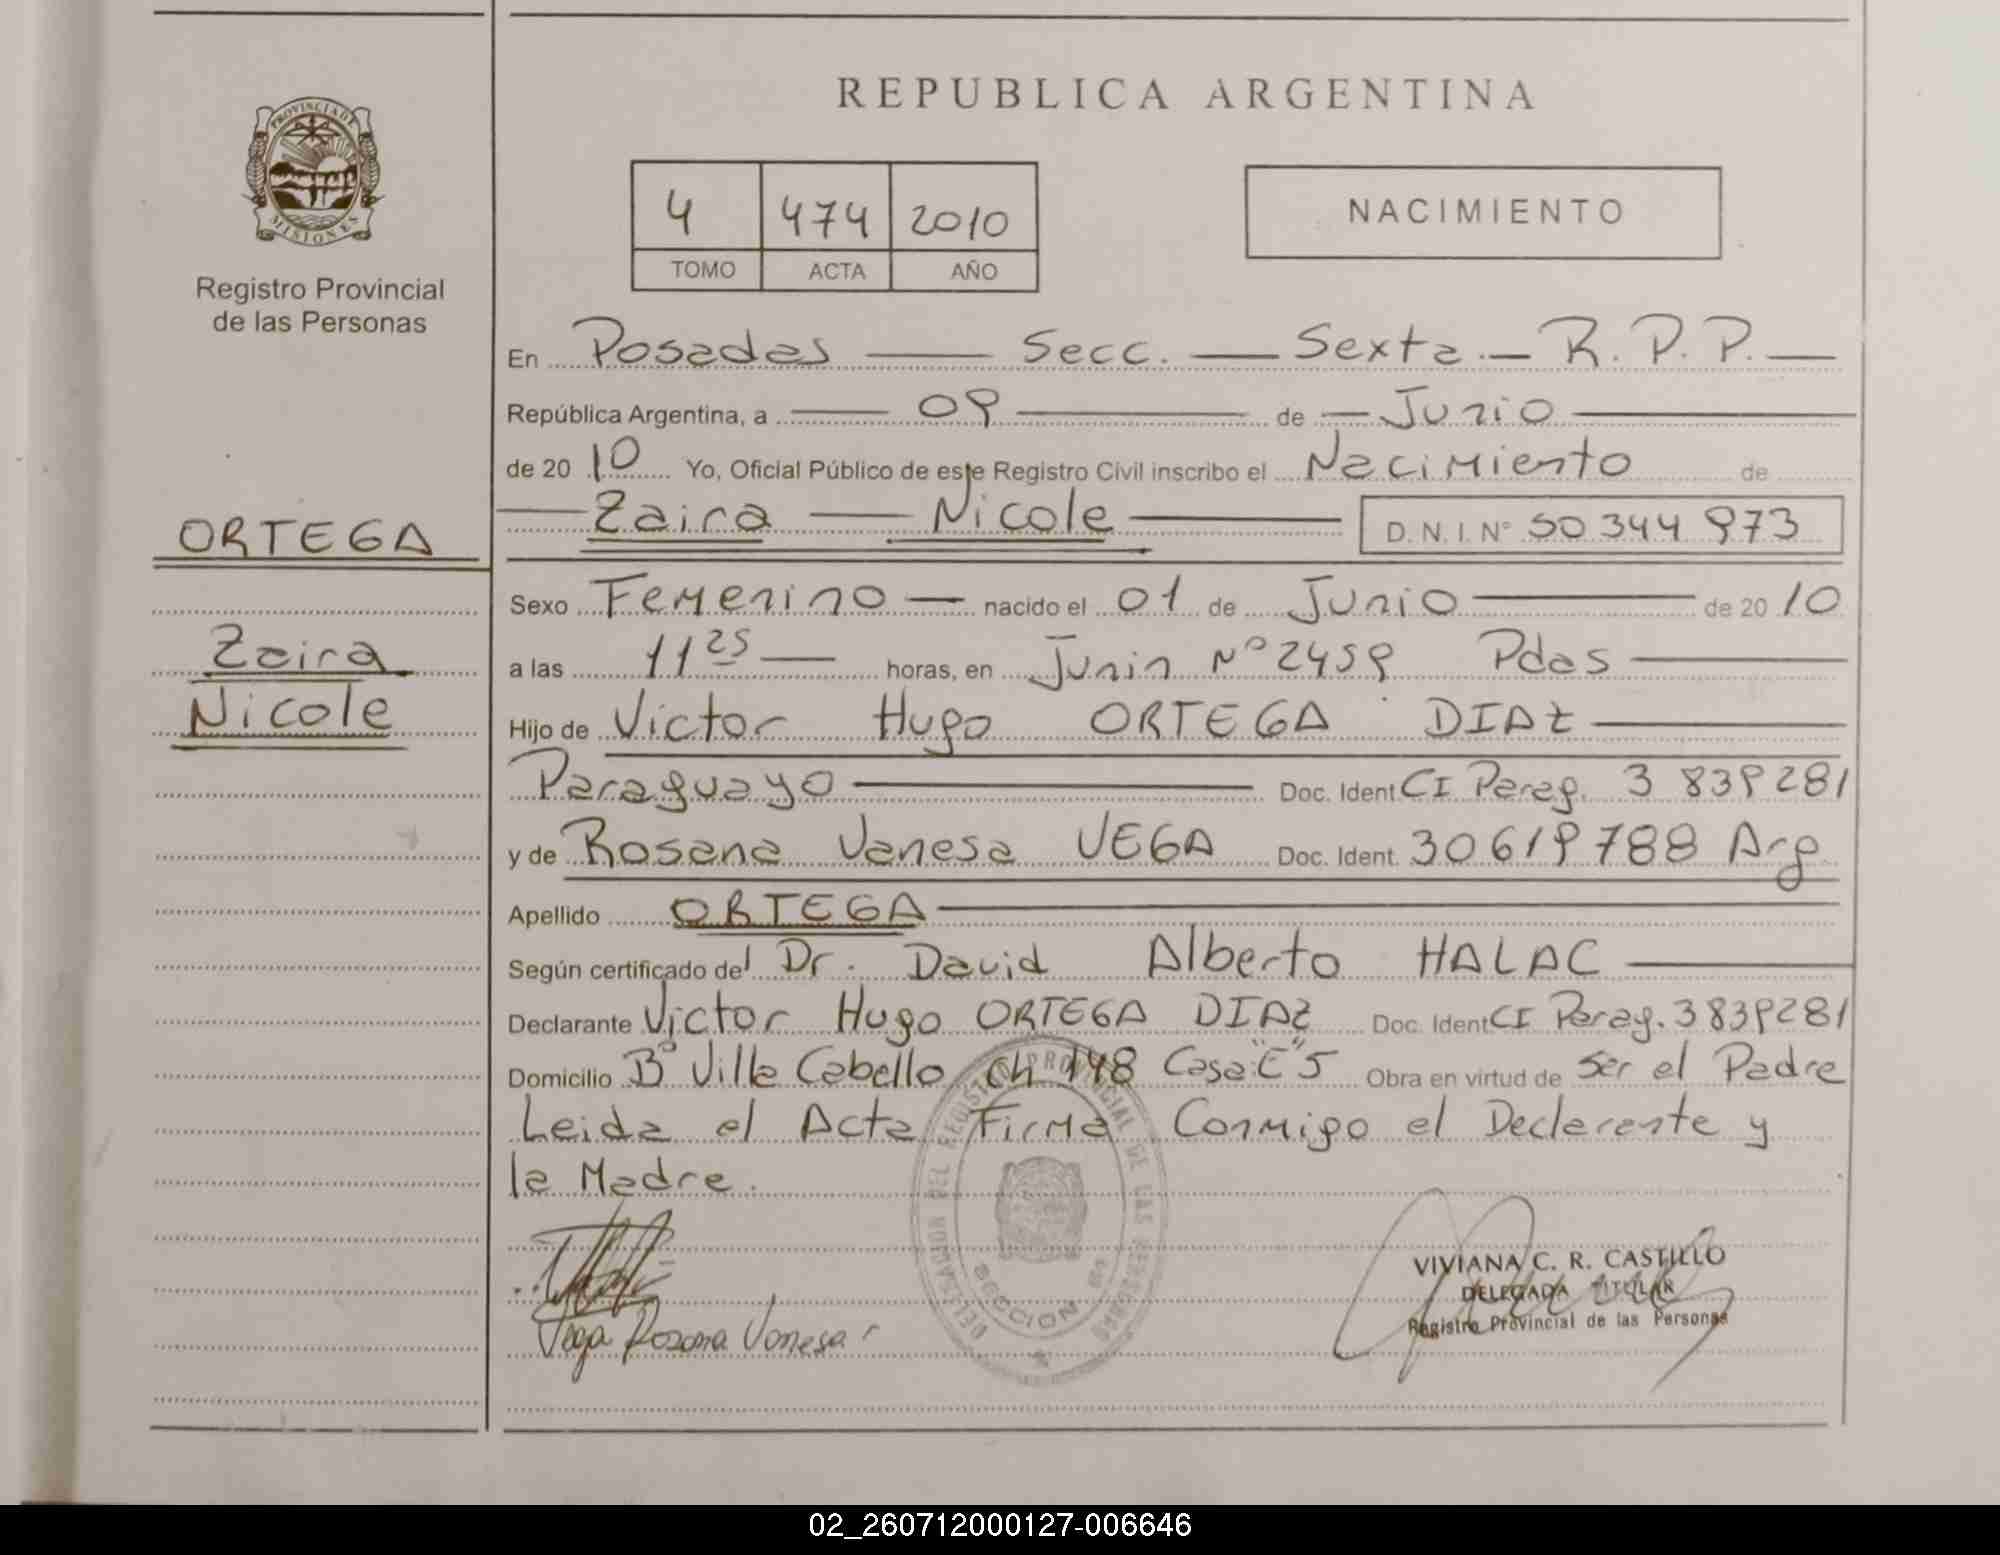 REPUBLICA ARGENTINA
PROVINCIA DE
MISIONES
Registro Provincial
de las Personas
4 474 2010
TOMO ACTA AÑO
NACIMIENTO
En Posadas — Secc. — Sexta — R.P.P. —
República Argentina, a — 09 — de — Junio —
de 2010 Yo, Oficial Público de este Registro Civil inscribo el Nacimiento de
— Zaira — Nicole — D.N.I. Nº 50 344 973
ORTEGA
Zaira
Nicole
Sexo Femenino — nacido el 01 de Junio — de 2010
a las 11 25 — horas, en Junin Nº 2459 Pdas —
Hijo de Victor Hugo ORTEGA DIAZ —
Paraguayo — Doc. Ident CI Parag. 3 839281
y de Rosana Vanesa VEGA Doc. Ident. 30619788 Arg
Apellido ORTEGA —
Según certificado del Dr. David Alberto HALAC —
Declarante Victor Hugo ORTEGA DIAZ Doc. Ident CI Parag. 3839281
Domicilio Bº Villa Cabello Ch 148 Casa "E" 5 Obra en virtud de Ser el Padre
Leida el Acta Firma Conmigo el Declarante y
la Madre.
Vega Rosana Vanesa
DELEGACION DEL REGISTRO PROVINCIAL DE LAS PERSONAS
SECCION 6a
VIVIANA C. R. CASTILLO
DELEGADA TITULAR
Registro Provincial de las Personas
02_260712000127-006646